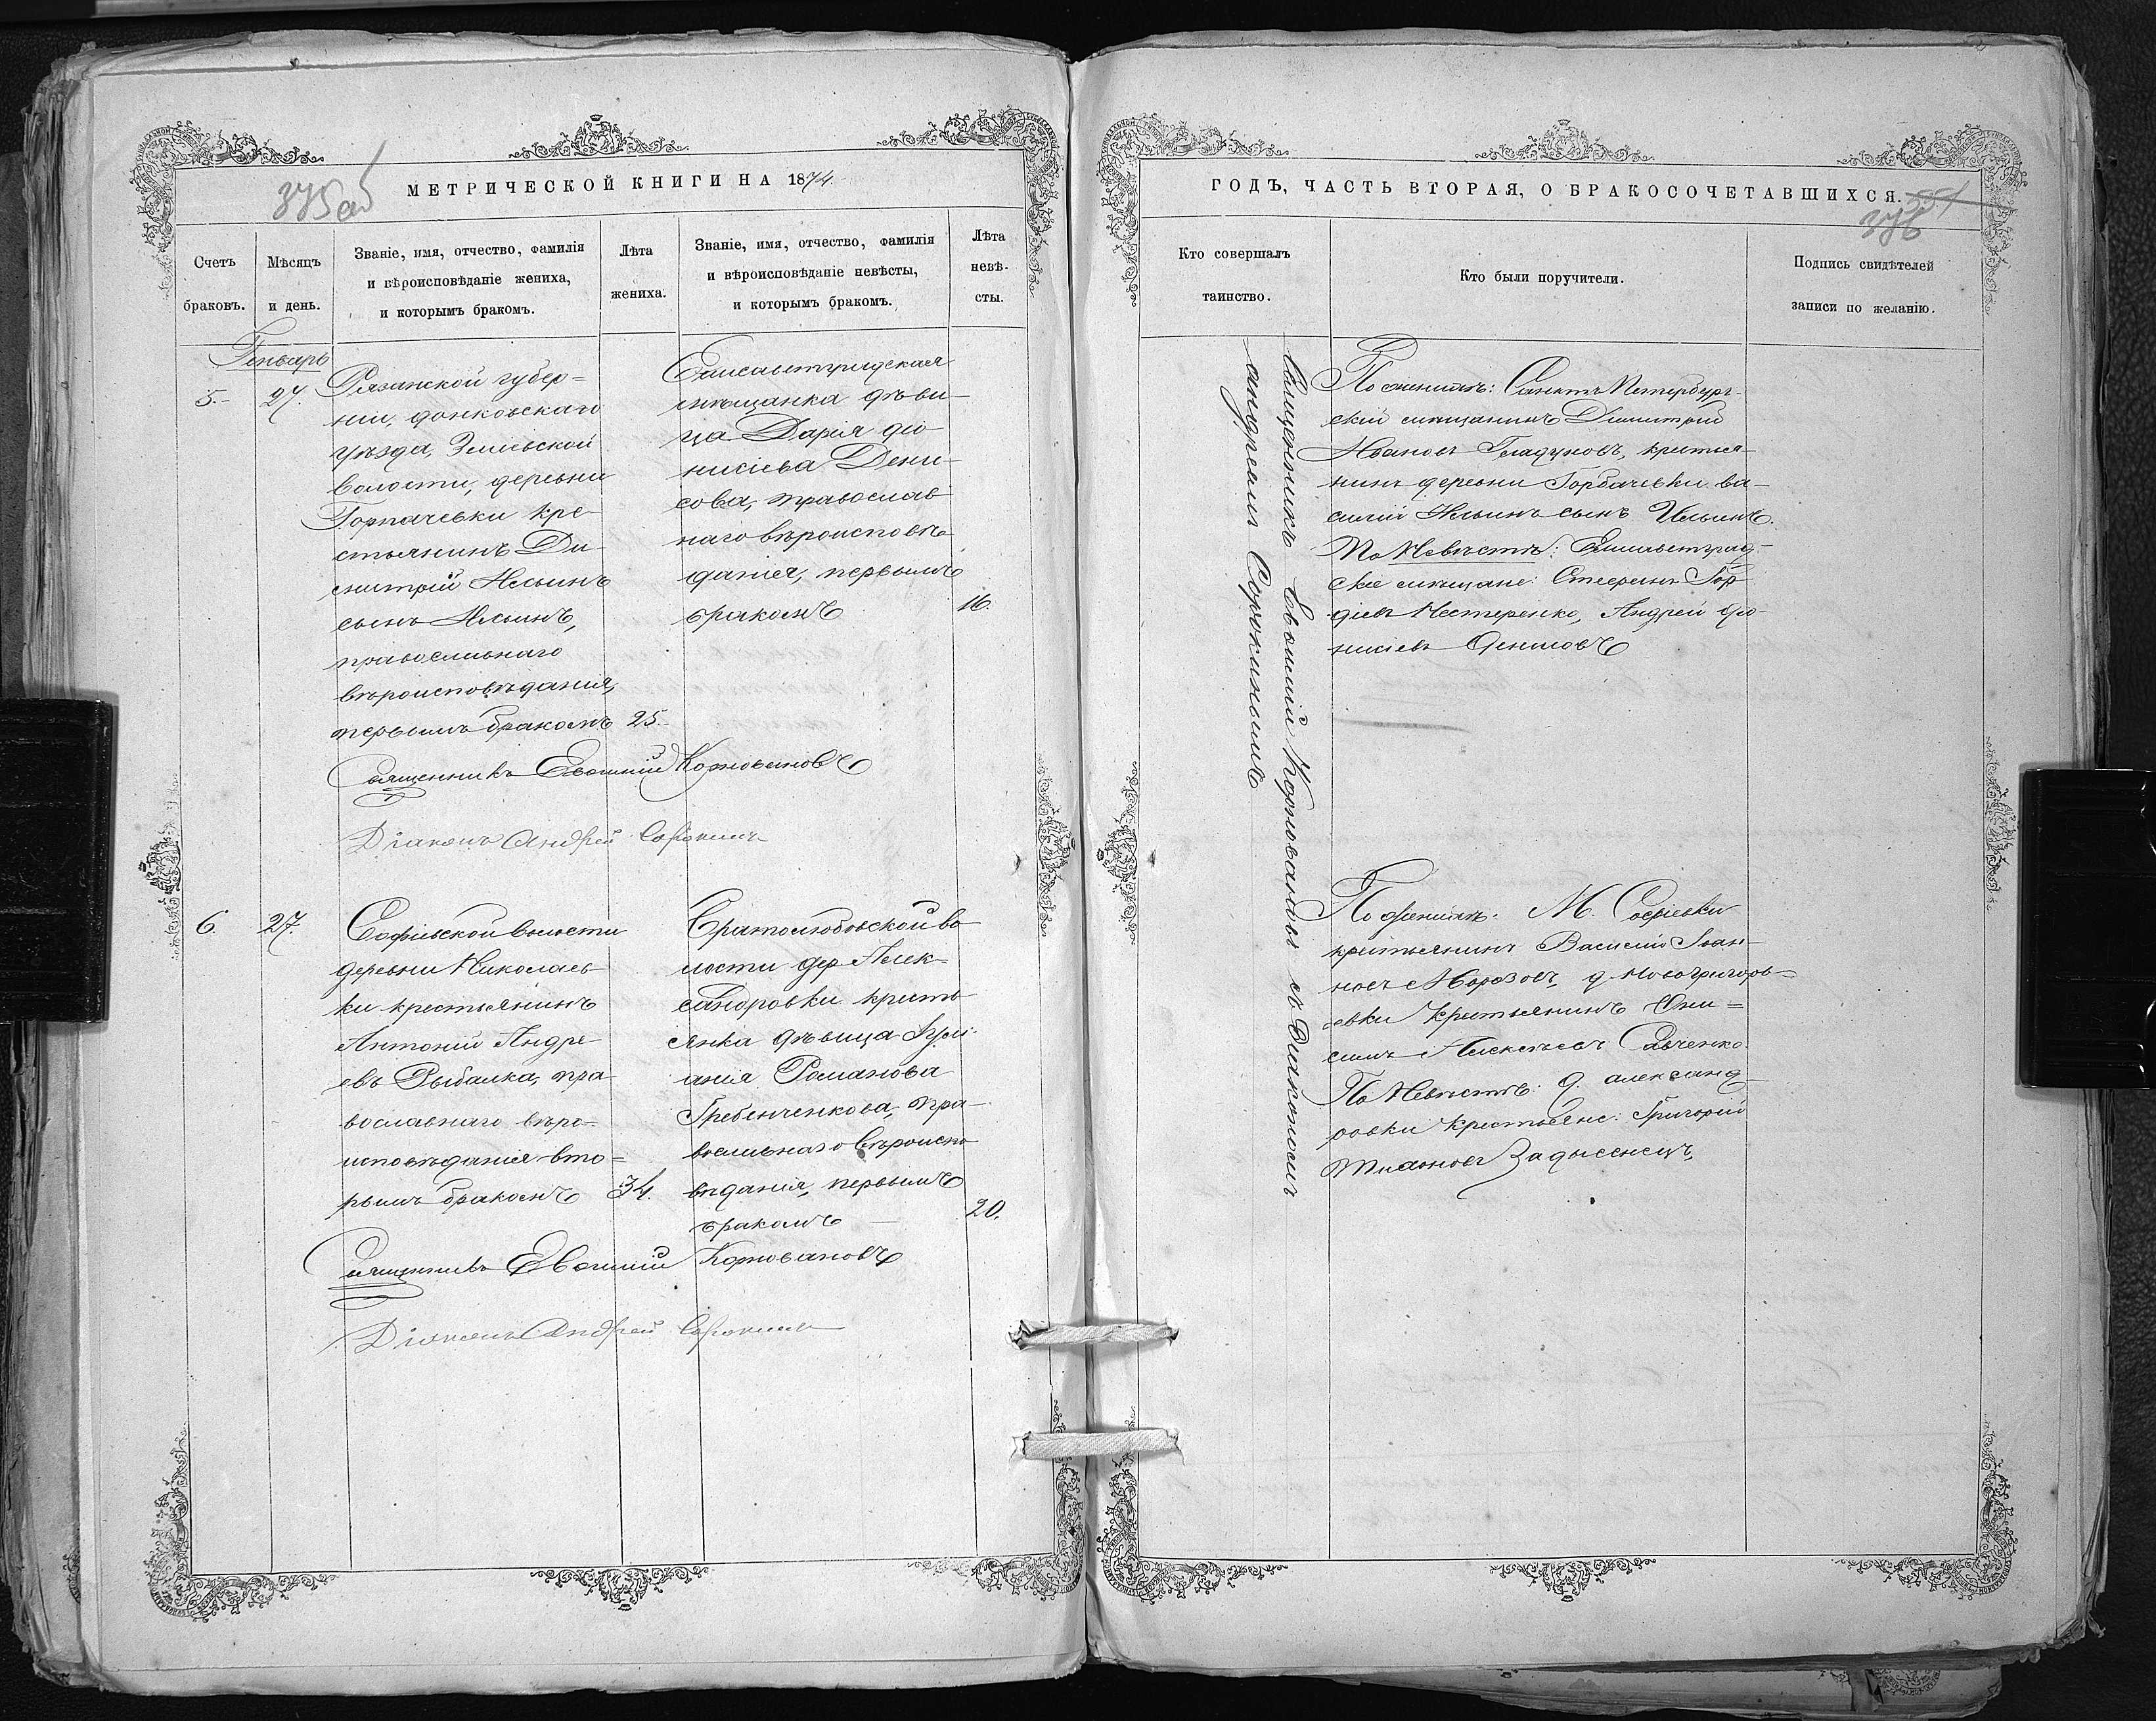 375 об
МЕТРИЧЕСКОЙ КНИГИ НА 1874.
Счетъ
браковъ.
Мѣсяцъ
и день.
Званіе, имя, отчество, фамилія
и вѣроисповѣданіе жениха,
и которымъ бракомъ.
Лѣта
жениха.
Званіе, имя, отчество, фамилія
и вѣроисповѣданіе невѣсты,
и которымъ бракомъ.
Лѣта
невѣ-
сты.
Генварь
5.
27.
Рязанской губер=
ніи, донковскаго
уѣзда, Змievской
волости, деревни
Горпачевки кре-
стьянинъ Ди-
митрій Ильинъ
сынъ Ильинъ,
православнаго
вѣроисповѣданія,
первымъ бракомъ
25.
Елисаветградская
мѣщанка дѣви-
ца Дарія Дío-
нисіева Дени-
сова, православ
наго вѣроисповѣ
данія, первымъ
бракомъ
16.
Священникъ Евѳимій Корнованов
Діаконъ Андрей Сорокинъ
6.
27.
Софіевской волости
деревни Николаев-
ки крестьянинъ
Антоній Андре-
евъ Рыбалка, пра-
вославнаго вѣро-
исповѣданія вто=
рымъ бракомъ
34.
Братолюбовской во
лости дер. Алек-
сандровки кресть
янка дѣвица Іулі-
анія Романова
Гребенченкова, пра-
вославнаго вѣроиспо
вѣданія, первымъ
бракомъ
20.
Священникъ Евѳимій Корновановъ
Діаконъ Андрей Сорокинъ
ГОДЪ, ЧАСТЬ ВТОРАЯ, О БРАКОСОЧЕТАВШИХСЯ.
376
Кто совершалъ
таинство.
Кто были поручители.
Подпись свидѣтелей
записи по желанію.
Священникъ Евѳимій Корновановъ съ Діакономъ
Андреемъ Сорокинымъ
По женихѣ: Санктъ Петербург-
скій мѣщанинъ Димитрій
Ивановъ Гладуновъ, крестья-
нинъ деревни Горбачевки Ва-
силій Ильинъ сынъ Ильинъ.
По Невѣстѣ: Елисаветград-
скіе мѣщане: Стефанъ Гор
діевъ Нестеренко, Андрей Діо-
нисіевъ Денисовъ
По женихѣ: М. Софіевки
крестьянинъ Василій Іван-
новъ Морозовъ, д. Новогригорь-
евки крестьянинъ Они=
симъ Алексѣевъ Савченко
По Невѣстѣ: д. Александ-
ровки крестьяне: Григорій
Тихоновъ Задысенецъ,